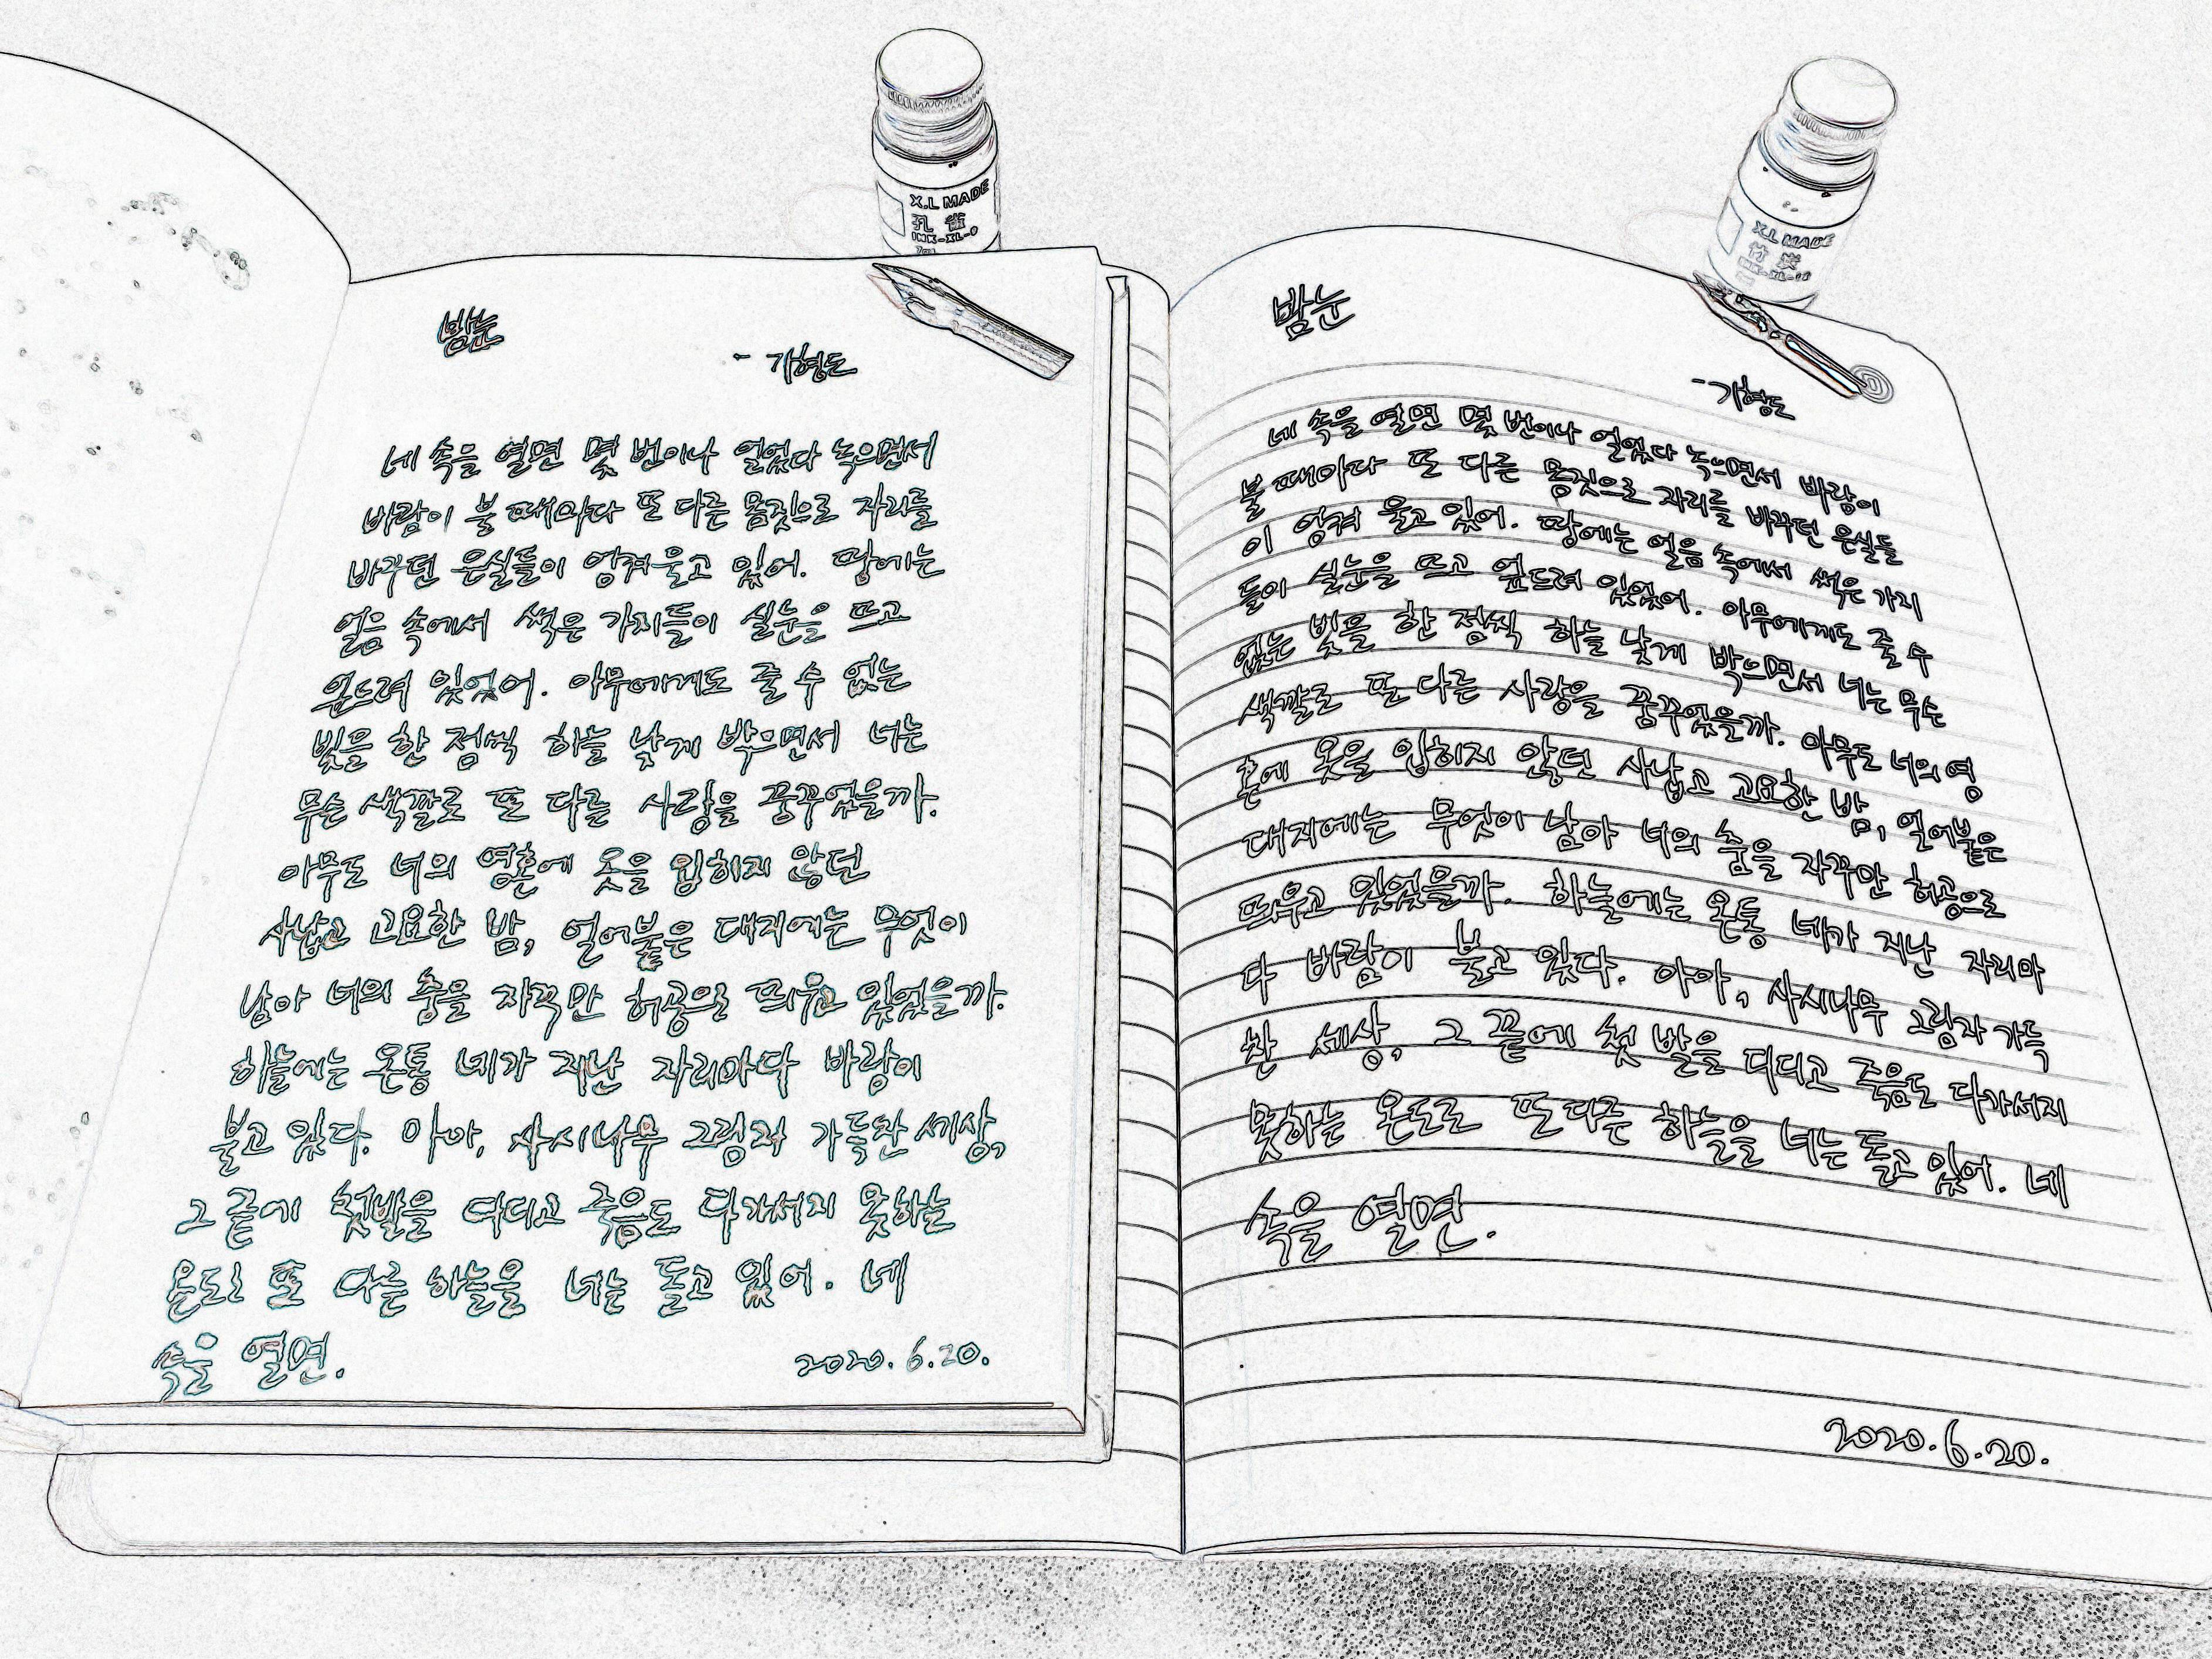 X.L MADE
孔雀
INK-XL-9
X.L MADE
竹炭
밤눈
- 기형도
네 속을 열면 몇 번이나 얼었다 녹으면서
바람이 불 때마다 또 다른 몸짓으로 자리를
바꾸던 은실들이 엉켜 울고 있어. 땅에는
얼음 속에서 썩은 가지들이 실눈을 뜨고
엎드려 있었어. 아무에게도 줄 수 없는
빛을 한 점씩 하늘 낮게 박으면서 너는
무슨 색깔로 또 다른 사랑을 꿈꾸었을까.
아무도 너의 영혼에 옷을 입히지 않던
사납고 고요한 밤, 얼어붙은 대지에는 무엇이
남아 너의 춤을 자꾸만 허공으로 띄우고 있었을까.
하늘에는 온통 네가 지난 자리마다 바람이
불고 있다. 아아, 사시나무 그림자 가득찬 세상,
그 끝에 첫발을 디디고 죽음도 다가서지 못하는
온도로 또 다른 하늘을 너는 돌고 있어. 네
속을 열면.
2020. 6. 20.
밤눈
- 기형도
네 속을 열면 몇 번이나 얼었다 녹으면서 바람이
불 때마다 또 다른 몸짓으로 자리를 바꾸던 은실들
이 엉켜 울고 있어. 땅에는 얼음 속에서 썩은 가지
들이 실눈을 뜨고 엎드려 있었어. 아무에게도 줄 수
없는 빛을 한 점씩 하늘 낮게 박으면서 너는 무슨
색깔로 또 다른 사랑을 꿈꾸었을까. 아무도 너의 영
혼에 옷을 입히지 않던 사납고 고요한 밤, 얼어붙은
대지에는 무엇이 남아 너의 춤을 자꾸만 허공으로
띄우고 있었을까. 하늘에는 온통 네가 지난 자리마
다 바람이 불고 있다. 아아, 사시나무 그림자 가득
찬 세상, 그 끝에 첫 발을 디디고 죽음도 다가서지
못하는 온도로 또 다른 하늘을 너는 돌고 있어. 네
속을 열면.
2020. 6. 20.